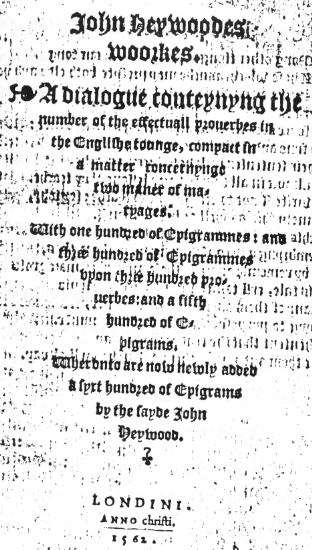 John Heywoodes
woorkes.
A dialogue conteynyng the
number of the effectuall prouerbes in
the Englishe tounge, compact in
a matter concernynge
two maner of ma-
ryages.
With one hundred of Epigrammes: and
three hundred of Epigrammes
vpon three hundred pro-
uerbes: and a fifth
hundred of E-
pigrams.
Whervnto are now newly added
a syxt hundred of Epigrams
by the sayde John
Heywood.
LONDINI.
ANNO christi.
1562.